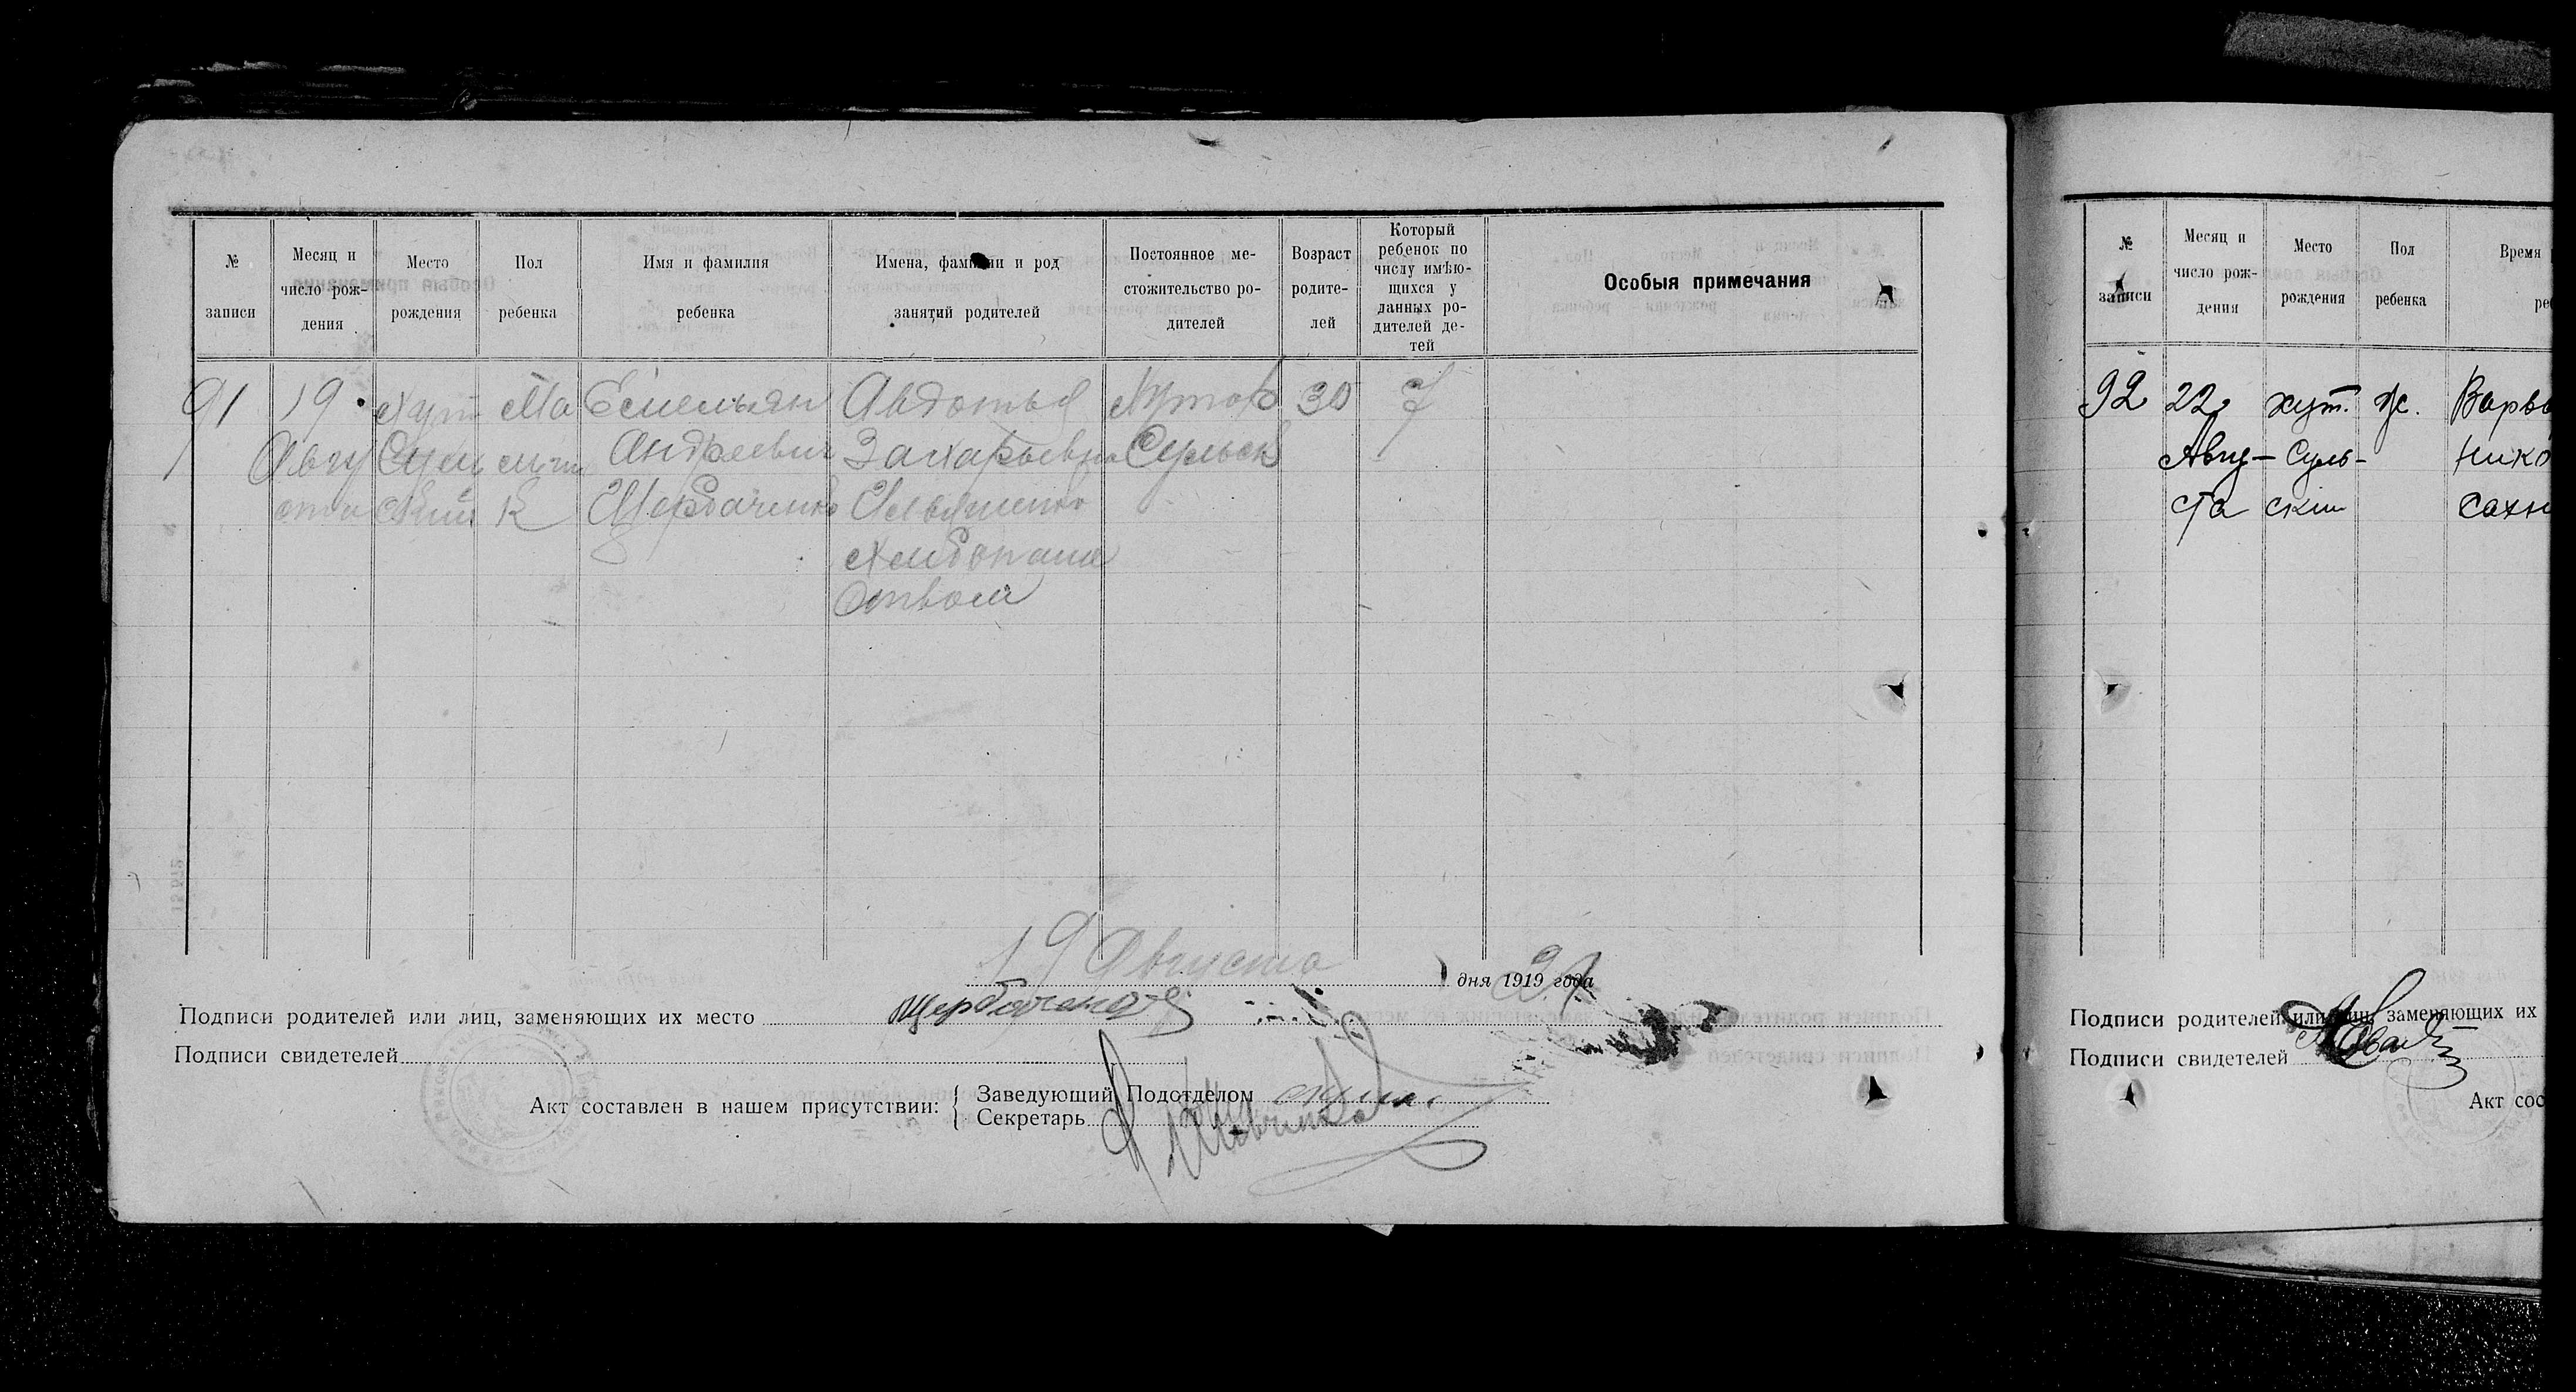 № записи
Месяц и число рож-дения
Место рождения
Пол ребенка
Имя и фамилия ребенка
Имена, фамилии и род занятий родителей
Постоянное ме-стожительство ро-дителей
Возраст родите-лей
Который ребенок по числу имѣю-щихся у данных ро-дителей де-тей
Особыя примечания
91 19 Хут Ма Емельян Авдотья Хутор 30 7
Авгу Суль льчи Андреевич Захарьевна Сульск
ста ский к Щербаченко Ильяшенко
Хлебопаше
ством
19 Августа дня 1919 года 21
Подписи родителей или лиц, заменяющих их место Щербаченко
Подписи свидетелей
Акт составлен в нашем присутствии: { Заведующий Подотделом
Секретарь
№ записи
Месяц и число рож-дения
Место рождения
Пол ребенка
Время
ре
92 22 хут. ж. Варва
Авгу- Суль- Нико
ста ский Сахн
Подписи родителей или лиц, заменяющих их
Подписи свидетелей
Акт сос